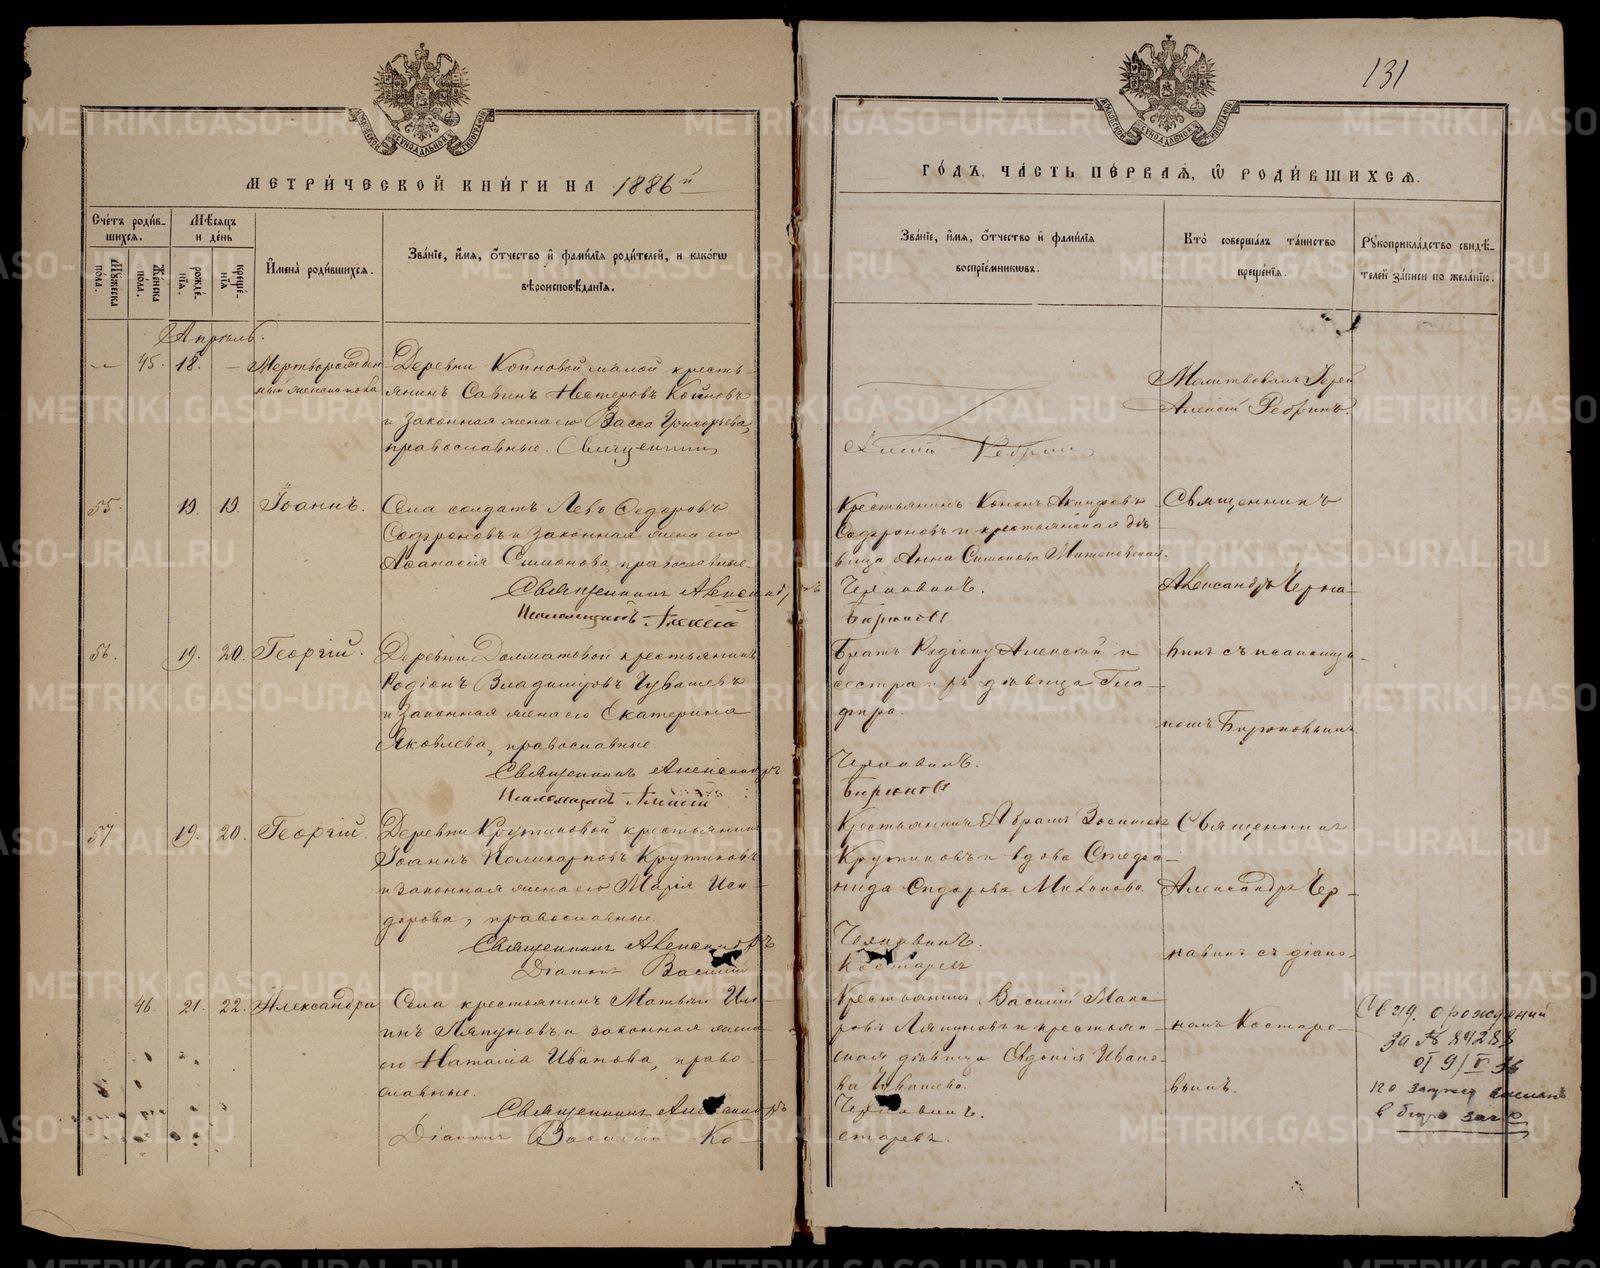 131
МЕТРИ́ЧЕСКОЙ КНИ́ГИ НА 1886й
ГО́ДЪ, ЧА́СТЬ ПЕ́РВАѦ, Ѡ РОДИ́ВШИХСѦ.
Счетъ роди́вшихся.
Мꙋжеска по́ла.
Же́нска по́ла.
Мѣсяцъ и де́нь
рожде́нія.
креще́нія
И҆мена̀ роди́вшихся.
Зва́ніе, и҆́мя, ѻ҆́тчество и҆ фами́лія роди́телей, и како́гѡ
вѣроисповѣ́данія.
Зва́ніе, и҆́мя, ѻ҆́тчество и҆ фами́лія
воспріе́мниковъ.
Кто̀ соверша́лъ та́инство
креще́нія.
Рꙋкоприкла́дство свидѣ́-
телей за́писи по жела́нію.
Апрель.
45. 18. — Мертворожден
ный женска пола
Деревни Койновой малой кресть-
янинъ Савинъ Нестеровъ Койновъ
и законная жена его Васса Григорьева,
православные. Священникъ
Алексій Ребринъ
Молитвовалъ Іерей
Алексій Ребринъ.
55. 19. 19. Іоаннъ.
Села солдатъ Левъ Федоровъ
Софроновъ и законная жена его
Афанасія Симонова, православные.
Священникъ Александръ
Псаломщикъ Алексій
Крестьянинъ Конон
Софроновъ и крестьянская дѣ
вица Анна Симонова
Чернавинъ.
Бирюковъ
Священникъ
Александръ Черна-
56. 19. 20. Георгій.
Деревни Долматовой крестьянинъ
Родіонъ Владиміровъ Чувашевъ
и законная жена его Екатерина
Яковлева, православные
Священникъ Александръ
Псаломщикъ Алексій
Братъ Родіону Алексѣй и
сестра дѣвица Гла-
фира.
Чернавинъ.
Бирюковъ
винъ съ псаломщи-
комъ Бирюковымъ
57. 19. 20. Георгій.
Деревни Крутиковой крестьянинъ
Іоаннъ Поликарповъ Крутиковъ
и законная жена его Марія Иси-
дорова, православные
Священникъ Александръ
Діаконъ Василій
Крестьянинъ Абрамъ Зосимовъ
Крутиковъ и вдова Стефа-
нида Сидорова
Чернавинъ.
Костаревъ
Священникъ
Александръ Чер-
навинъ съ діако-
46. 21. 22. Александра
Села крестьянинъ Матвѣй Иль-
инъ Ляпуновъ и законная жена
его Наталія Иванова, право-
славные.
Священникъ Александръ
Діаконъ Василій Ко-
Крестьянинъ Василій Мака-
ровъ Ляпуновъ и крестьян-
ская дѣвица Евдокія Ивано-
ва Чувашева.
Чернавинъ.
старевъ.
номъ Костаре-
вымъ.
Свид. о рождений
за № 84288
от 9/V 36
в бюро загс